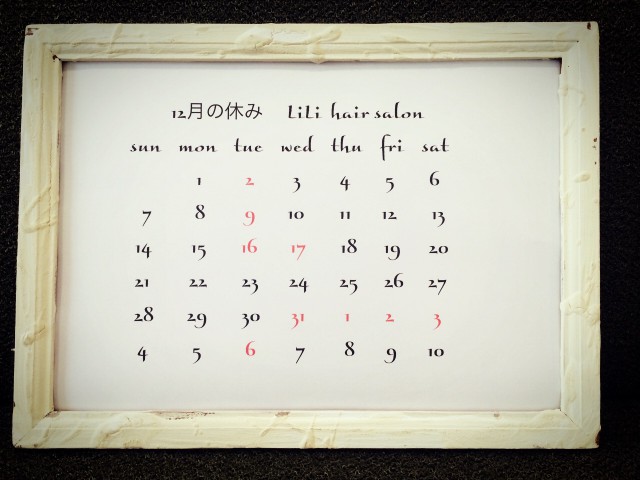 12月の休み LiLi hair salon
sun mon tue wed thu fri sat
1 2 3 4 5 6
7 8 9 10 11 12 13
14 15 16 17 18 19 20
21 22 23 24 25 26 27
28 29 30 31 1 2 3
4 5 6 7 8 9 10